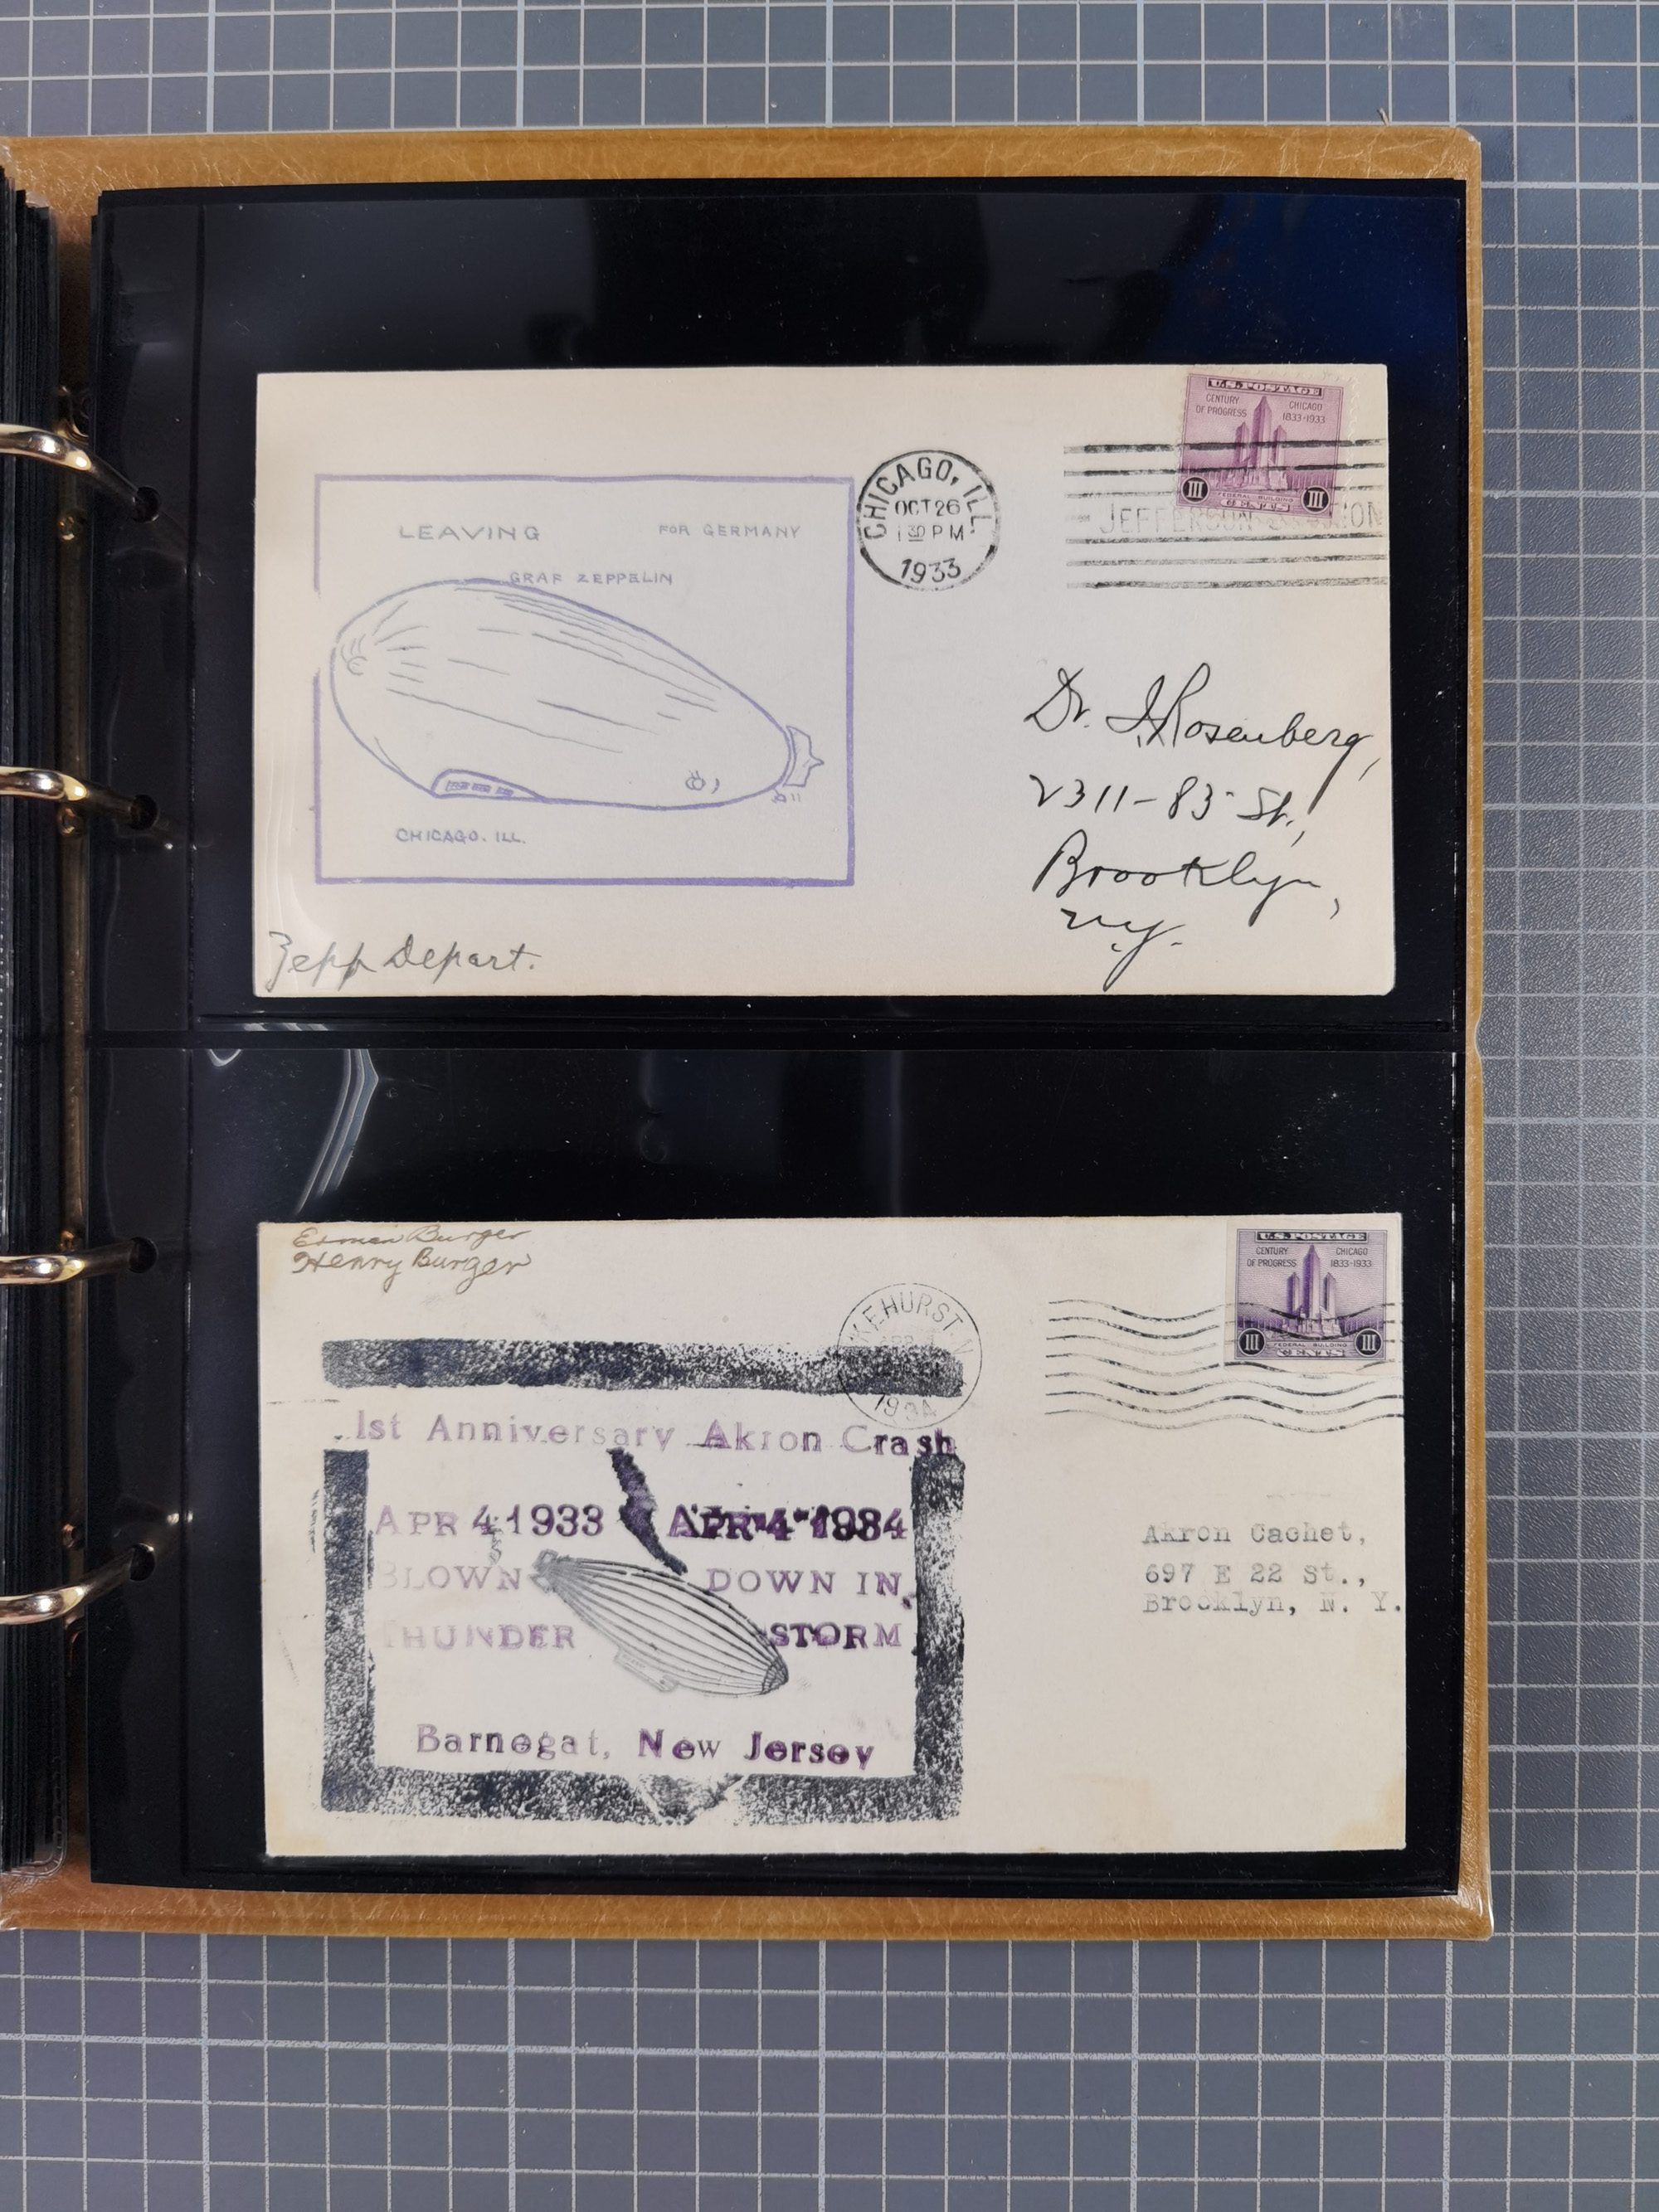 U.S. POSTAGE
CENTURY OF PROGRESS
CHICAGO 1833-1933
III
FEDERAL BUILDING
III
CENTS
CHICAGO, ILL.
OCT 26
1 30 PM
1933
JEFFERSON STATION
LEAVING FOR GERMANY
GRAF ZEPPELIN
CHICAGO. ILL.
Dr. I. Rosenberg,
2311-83 St.,
Brooklyn,
N.Y.
Zepp Depart.
Burger
Henry Burger
U.S. POSTAGE
CENTURY OF PROGRESS
CHICAGO 1833-1933
III
FEDERAL BUILDING
III
CENTS
KEHURST. N
APR
1934
1st Anniversary Akron Crash
APR 4 1933 APR 4 1934
BLOWN DOWN IN
THUNDER STORM
Barnegat, New Jersey
Akron Cachet,
697 E 22 St.,
Brooklyn, N. Y.